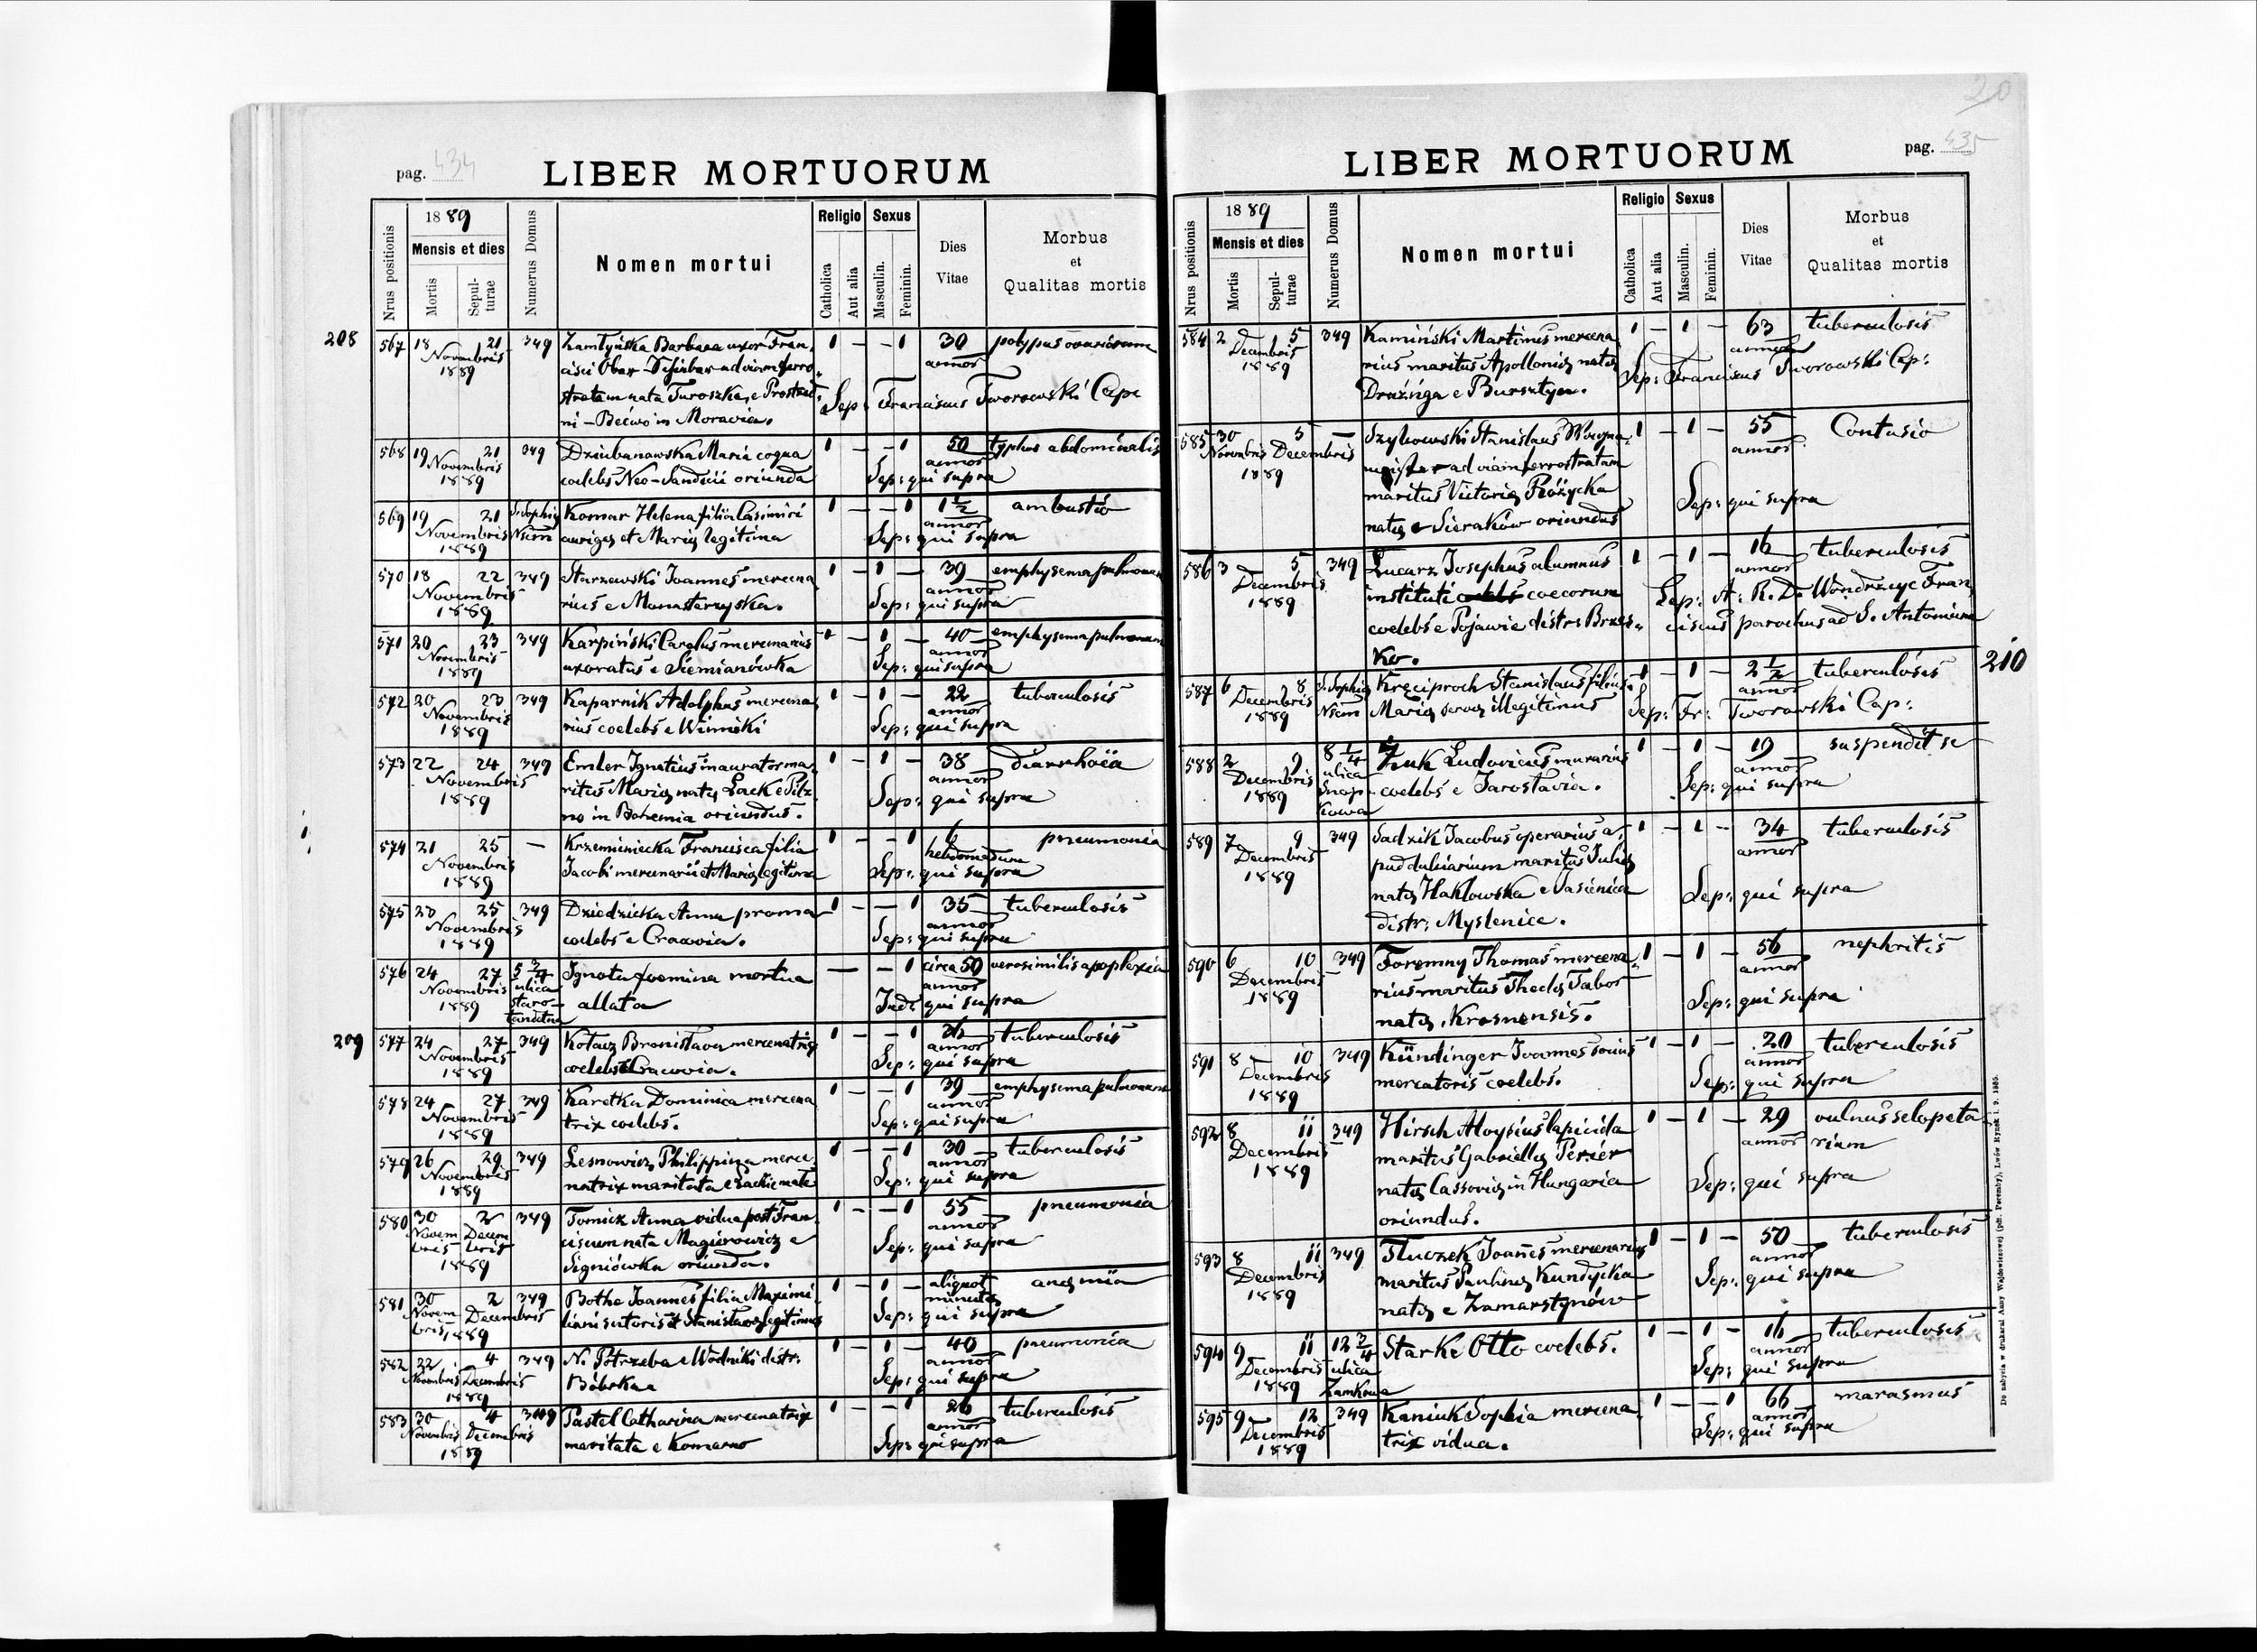 pag. 434
LIBER MORTUORUM
Nrus positionis
1889
Mensis et dies
Mortis
Sepulturae
Numerus Domus
Nomen mortui
Religio
Catholica
Aut alia
Sexus
Masculin.
Feminin.
Dies
Vitae
Morbus
et
Qualitas mortis
208
567 18 21 349 Barbara uxor Fran 1 — — 1 30
Novembris annor
1889 Sep: Franciscus Tworowski Cap
in Moravia.
568 19 21 349 Dziubanowska Maria coqua 1 — — 1 50 typhus abdominalis
Novembris coelebs Neo-Sandecii oriunda annor
1889 Sep: qui supra
569 19 21 S. Sophia Komar Helena filia Casimiri 1 — — 1 1½ ambustio
Novembris Nsum aurigae et Mariae legitima annor
1889 Sep: qui supra
570 18 22 349 Starzewski Joannes mercena 1 — 1 — 39 emphysema pulmonum
Novembris rius e Monasterzyska. annor
1889 Sep: qui supra
571 20 23 349 Karpiński Carolus mercenarius 1 — 1 — 40 emphysema pulmonum
Novembris uxoratus e Siemianówka annor
1889 Sep: qui supra
572 20 23 349 Kaparnik Adolphus mercena 1 — 1 — 22 tuberculosis
Novembris rius coelebs e Winniki annor
1889 Sep: qui supra
573 22 24 349 Emler Ignatius inaurator ma 1 — 1 — 38 diarrhoëa
Novembris ritus Mariae natae Lack e Pilz annor
1889 no in Bohemia oriundus. Sep: qui supra
574 21 25 — Krzemieniecka Francisca filia 1 — — 1 6 pneumonia
Novembris Jacobi mercenarii et Mariae legitima hebdomadum
1889 Sep: qui supra
575 23 25 349 Dziedzicka Anna proma 1 — — 1 35 tuberculosis
Novembris coelebs e Cracovia. annor
1889 Sep: qui supra
576 24 27 5 3/4 Ignota foemina mortua — — 1 circa 50 verosimilis apoplexia
Novembris ulica allata annor
1889 staro- qui supra
tandetna
209
577 24 27 349 Bronislava mercenatrix 1 — — 1 26 tuberculosis
Novembris coelebs e Cracovia. annor
1889 Sep: qui supra
578 24 27 349 Karetka Dominica mercena 1 — — 1 39 emphysema pulmonum
Novembris trix coelebs. annor
1889 Sep: qui supra
579 26 29 349 Lesnowicz Philippina merce 1 — — 1 30 tuberculosis
Novembris natrix maritata annor
1889 Sep: qui supra
580 30 2 349 Tomick Anna vidua post Fran 1 — — 1 55 pneumonia
Novem Decem ciscum nata Magierowicz e annor
bris bris Signiówka oriunda. Sep: qui supra
1889
581 30 2 349 Bothe Joannes filia Maximi 1 — 1 — aliquot anaemia
Novem Decembris liani sutoris et Stanislavae legitimus minutae
bris 1889 Sep: qui supra
582 22 4 349 N. Potrzeba e Wodniki distr: 1 — 1 — 40 pneumonia
Novembris Decembris Bóbrka annor
1889 Sep: qui supra
583 30 4 349 Pastel Catharina mercenatrix 1 — — 1 26 tuberculosis
Novembris Decembris maritata e Komarno annor
1889 Sep: qui supra
20
pag. 435
LIBER MORTUORUM
Nrus positionis
1889
Mensis et dies
Mortis
Sepulturae
Numerus Domus
Nomen mortui
Religio
Catholica
Aut alia
Sexus
Masculin.
Feminin.
Dies
Vitae
Morbus
et
Qualitas mortis
584 2 5 349 Kamiński Martinus mercena 1 — 1 — 63 tuberculosis
Decembris rius maritus Apolloniae natae annor
1889 e Bursztyn. Sep: Franciscus Tworowski Cap:
585 30 5 — Szykowski Stanislaus 1 — 1 — 55 Contusio
Novembris Decembris ad viam ferrostratam annor
1889 maritus Victoriae Różycka
natae e Sieraków oriundus Sep: qui supra
586 3 5 349 Lucarz Josephus alumnus 1 — 1 — 16 tuberculosis
Decembris instituti coecorum annor
1889 coelebs e Pojawie distr: Brzes- Sep: A. R. D. Wondrzyc Fran
ko. ciscus parochus ad S. Antonium
210
587 6 8 S. Sophia Kręciproch Stanislaus filius 1 — 1 — 2½ tuberculosis
Decembris Nsum Mariae servae illegitimus annor
1889 Sep: Fr: Tworowski Cap:
588 2 9 8 1/4 Żuk Ludovicus murarius 1 — 1 — 19 suspendit se
Decembris ulica coelebs e Jaroslavia. annor
1889 Snop- Sep: qui supra
kowa
589 7 9 349 Sadzik Jacobus operarius a 1 — 1 — 34 tuberculosis
Decembris pud dulciarium maritus Juliae annor
1889 natae Haklowska e Jasienica Sep: qui supra
distr: Myslenice.
590 6 10 349 Foremny Thomas mercena 1 — 1 — 56 nephritis
Decembris rius maritus Theclae Tabor annor
1889 natae, Krosnensis. Sep: qui supra
591 8 10 349 Kündinger Joannes socius 1 — 1 — 20 tuberculosis
Decembris mercatoris coelebs. annor
1889 Sep: qui supra
592 8 11 349 Hirsch Aloysius lapicida 1 — 1 — 29 vulnus selopeta
Decembris maritus Gabriellae Periér annor rium
1889 natae Cassoviae in Hungaria Sep: qui supra
oriundus.
593 8 11 349 Tluczek Joannes mercenarius 1 — 1 — 50 tuberculosis
Decembris maritus Paulinae Kundycka annor
1889 natae e Zamarstynów Sep: qui supra
594 9 11 12 3/4 Starke Otto coelebs. 1 — 1 — 16 tuberculosis
Decembris ulica annor
1889 Zamkowa Sep: qui supra
595 9 12 349 Kaniuk Sophia mercena 1 — — 1 66 marasmus
Decembris trix vidua. annor
1889 Sep: qui supra